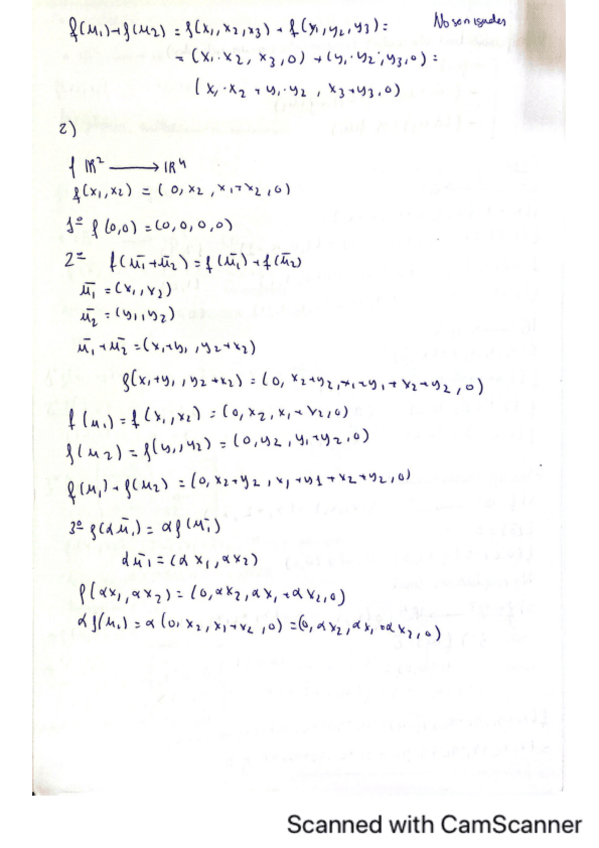 f(μ1)+f(μ2) = f(x1,x2,x3) + f(y1,y2,y3) = No son iguales
= (x1·x2, x3,0) + (y1·y2,y3,0) =
(x1·x2 + y1·y2, x3+y3,0)
2)
f ℝ² ⟶ ℝ⁴
f(x1,x2) = (0,x2,x1+x2,0)
1º f(0,0) = (0,0,0,0)
2º f(μ̄1+μ̄2) = f(μ̄1)+f(μ̄2)
μ̄1 = (x1,x2)
μ̄2 = (y1,y2)
μ̄1+μ̄2 = (x1+y1, y2+x2)
f(x1+y1, y2+x2) = (0, x2+y2, x1+y1+x2+y2,0)
f(μ1) = f(x1,x2) = (0,x2,x1+x2,0)
f(μ2) = f(y1,y2) = (0,y2,y1+y2,0)
f(μ1)+f(μ2) = (0,x2+y2,x1+y1+x2+y2,0)
3º f(αμ̄1) = αf(μ̄1)
αμ̄1 = (αx1,αx2)
f(αx1,αx2) = (0,αx2,αx1+αx2,0)
αf(μ1) = α(0,x2,x1+x2,0) = (0,αx2,αx1+αx2,0)
Scanned with CamScanner